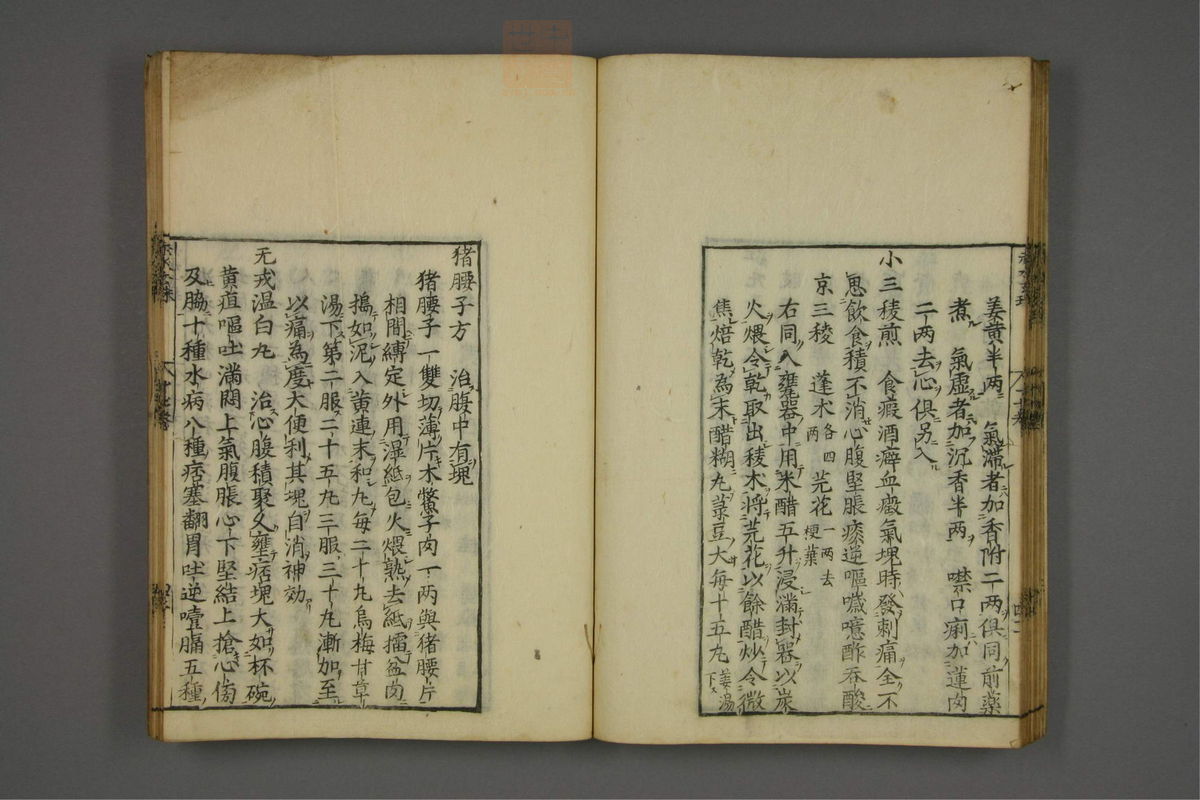 姜黄半两　氣滯者加香附二两俱同前藥
煮　氣虚者加沉香半两　噤口痢加蓮肉
二两去心俱另入
小三稜煎　食癥酒癖血瘕氣塊時發刺痛全不
思飲食積不消心腹堅脹痰逆嘔噦噫酢吞酸
京三稜　蓬朮各四两　芫花一两去梗葉
右同入甕器中用米醋五升浸滿封器以炭
火煨令乾取出稜朮將芫花以餘醋炒令微
焦焙乾為末醋糊丸菉豆大每十五丸姜湯下
猪腰子方　治腹中有塊
猪腰子一雙切薄片木鱉子肉一两與猪腰片
相間縛定外用濕紙包火煨熟去紙擂盆內
搗如泥入黄連末和丸每二十丸烏梅甘草
湯下第二服二十五丸三服三十丸漸加至
以痛為度大便利其塊自消神効
无戎温白丸　治心腹積聚久壅痞塊大如杯碗
黄疸嘔吐滿悶上氣腹脹心下堅結上搶心傍
及脇十種水病八種痞塞翻胃吐逆噎膈五種